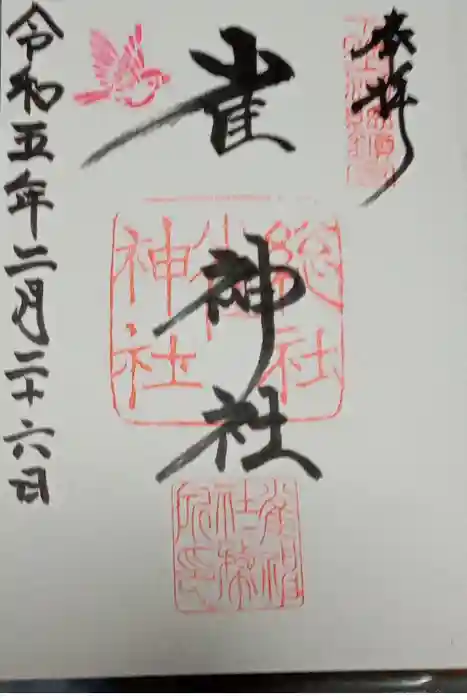 奉拝
雀神社
総社
雀
神社
雀神
社務
所印
令和五年二月二十六日